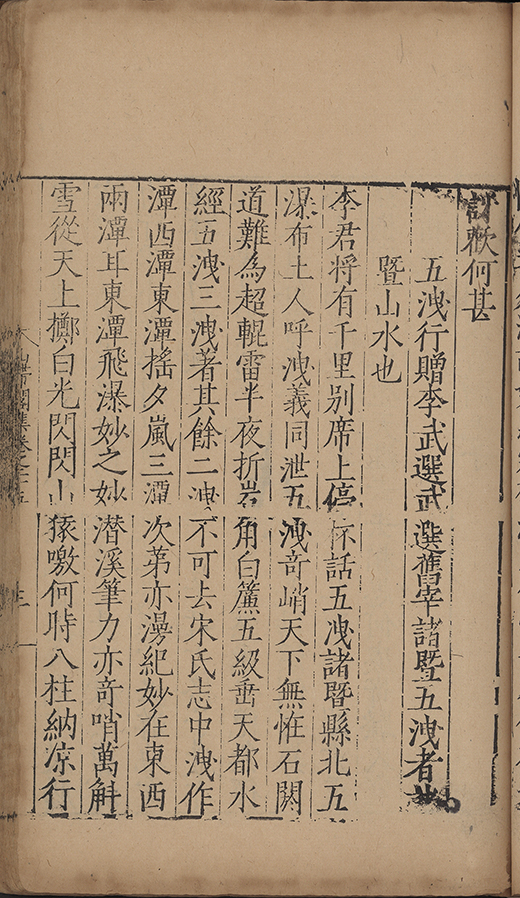 何甚
五洩行贈李武選武選舊宰諸暨五洩者
暨山水也
李君將有千里別席上停杯話五洩諸暨縣北五
瀑布土人呼洩義同泄五洩奇峭天下無恠石闕
道難為超輥雷半夜折岩角白簾五級垂天都水
經五洩三洩著其餘二洩不可去宋氏志中洩作
潭西潭東潭搖夕嵐三潭次第亦漫紀妙在東西
兩潭耳東潭飛瀑妙之妙潜溪筆力亦奇哨萬斛
雪從天上擲白光閃閃山猿噭何時八柱納凉行